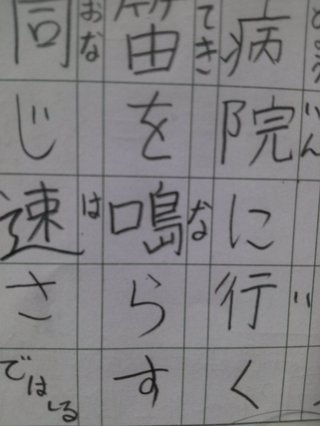 いん い
病院に行く
てき な
笛を鳴らす
おな は
同じ速さではしる